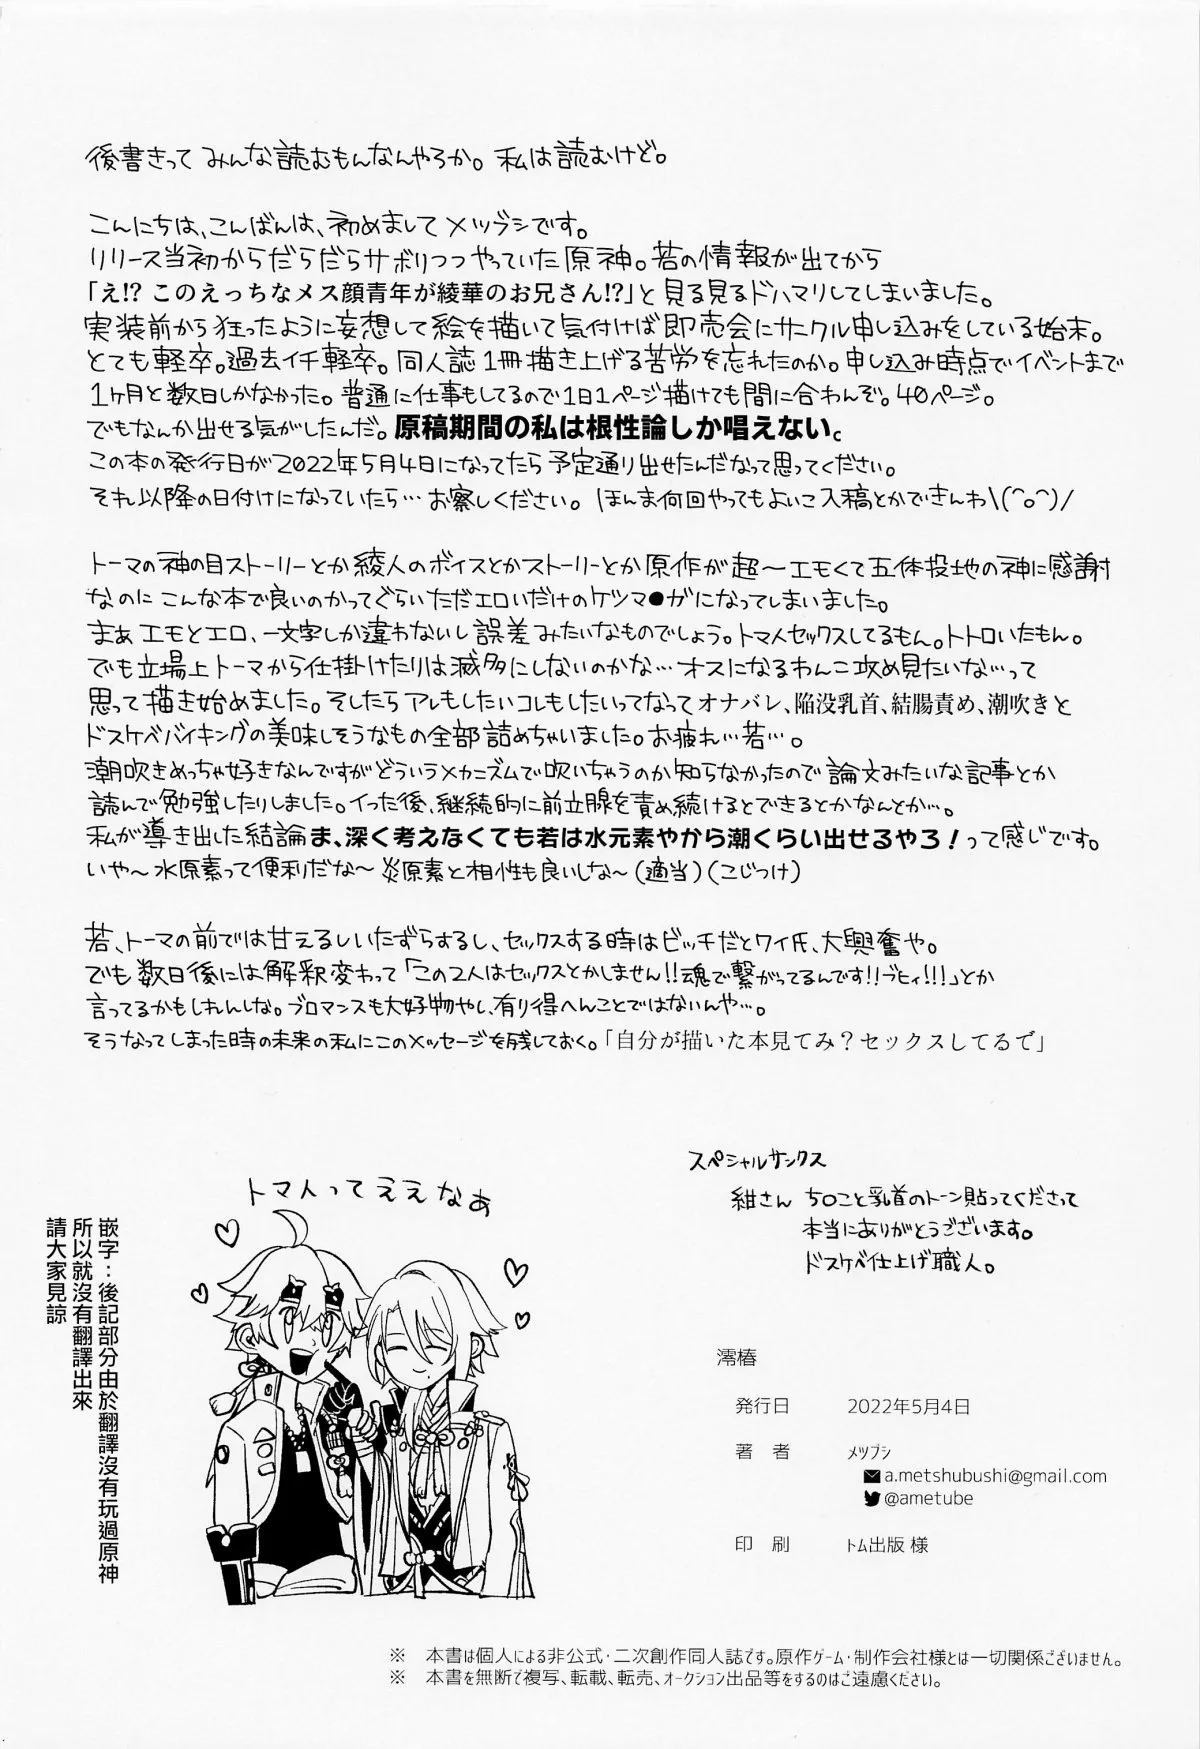 後書きって みんな読むもんなんやろか。私は読むけど。
こんにちは、こんばんは、初めまして メツブシです。
リリース当初からだらだらサボりつつやっていた原神。若の情報が出てから
「え!? このえっちなメス顔青年が綾華のお兄さん!?」と見る見るドハマりしてしまいました。
実装前から狂ったように妄想して絵を描いて気付けば即売会にサークル申し込みをしている始末。
とても軽卒。過去イチ軽卒。同人誌1冊描き上げる苦労を忘れたのか。申し込み時点でイベントまで
1ヶ月と数日しかなかった。普通に仕事もしてるので1日1ページ描けても間に合わんぞ。40ページ。
でもなんか出せる気がしたんだ。原稿期間の私は根性論しか唱えない。
この本の発行日が2022年5月4日になってたら予定通り出せたんだなって思ってください。
それ以降の日付けになっていたら…お察しください。ほんま何回やってもよいこ入稿とかできんわ\(^o^)/
トーマの神の目ストーリーとか綾人のボイスとかストーリーとか原作が超〜エモくて五体投地の神に感謝
なのにこんな本で良いのかってぐらいただエロいだけのケツマ●ガになってしまいました。
まぁエモとエロ、一文字しか違わないし誤差みたいなものでしょう。トマ人セックスしてるもん。トトロいたもん。
でも立場上トーマから仕掛けたりは滅多にしないのかな…オスになるわんこ攻め見たいな…って
思って描き始めました。そしたらアレもしたいコレもしたいってなってオナバレ、陥没乳首、結腸責め、潮吹きと
ドスケベバイキングの美味しそうなもの全部詰めちゃいました。お疲れ…若…。
潮吹きめっちゃ好きなんですがどういうメカニズムで吹いちゃうのか知らなかったので論文みたいな記事とか
読んで勉強したりしました。イった後、継続的に前立腺を責め続けるとできるとかなんとか…。
私が導き出した結論ま、深く考えなくても若は水元素やから潮くらい出せるやろ！って感じです。
いや〜水原素って便利だな〜炎原素と相性も良いしな〜(適当)(こじつけ)
若、トーマの前では甘えるしいたずらするし、セックスする時はビッチだとワイ氏、大興奮や。
でも数日後には解釈変わって「この2人はセックスとかしません!!魂で繋がってるんです!!ブヒィ!!!」とか
言ってるかもしれんしな。ブロマンスも大好物やし、有り得へんことではないんや…。
そうなってしまった時の未来の私にこのメッセージを残しておく。「自分が描いた本見てみ？セックスしてるで」
スペシャルサンクス
紺さん ち○こと乳首のトーン貼ってくださって
本当にありがとうございます。
ドスケベ仕上げ職人。
トマ人ってええなぁ
嵌字：後記部分由於翻譯沒有玩過原神
所以就沒有翻譯出來
請大家見諒
澪椿
発行日 2022年5月4日
著 者 メツブシ
a.metshubushi@gmail.com
@ametube
印 刷 トム出版 様
※ 本書は個人による非公式・二次創作同人誌です。原作ゲーム・制作会社様とは一切関係ございません。
※ 本書を無断で複写、転載、転売、オークション出品等をするのはご遠慮ください。